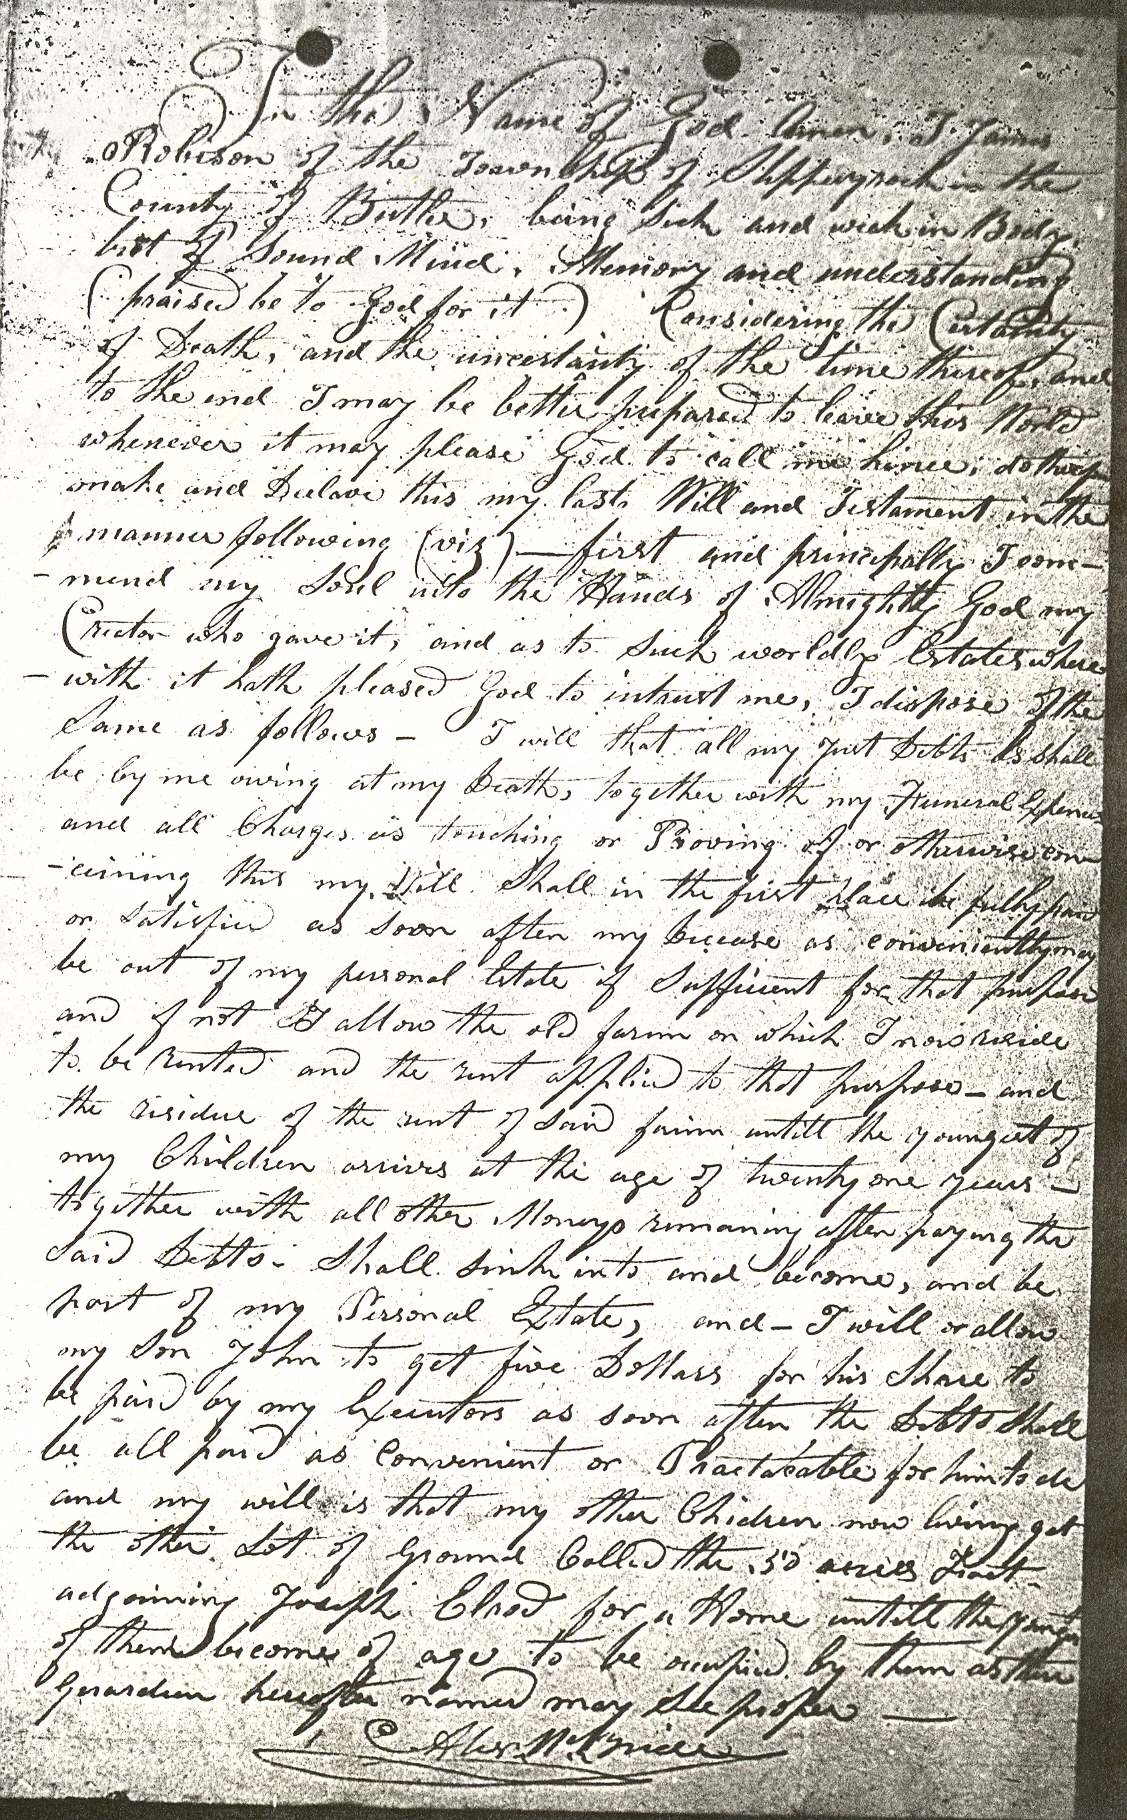 In the Name of God Amen, I James
Robison of the Township of Slippryrock in the
County of Butler, being Sick and weak in Body,
but of Sound Mind, Memory and understanding
(praised be to God for it) Considering the Certainty
of Death, and the uncertainty of the time thereof, and
to the end I may be better prepared to leave this World
whenever it may please God to call me hince; do therefore
make and Declare this my last Will and Testament in the
manner following (viz) — first and principally I com-
-mend my Soul into the Hands of Almighty God my
Creator who gave it, and as to Such worldly Estates where
-with it hath pleased God to intrust me, I dispose of the
Same as follows — I will that all my just Debts as shall
be by me owing at my Death, together with my Funeral Expences
and all Charges as touching or Proving of or otherwise con
-cerning this my Will Shall in the first place be fully paid
or Satisfied as Soon after my Decease as conveniently may
be out of my personal Estate if Sufficient for that purpose
and if not I allow the old farm on which I now reside
to be rented and the rent applied to that purpose — and
the residue of the rent of Said farm untill the youngest of
my Children arrives at the age of twenty one years —
together with all other Moneys remaining after paying the
Said Debts - Shall Sink into and become, and be
part of my Personal Estate, and — I will or allow
my Son John to get five Dollars for his Share to
be paid by my Executors as soon after the Debts Shall
be all paid as Convenient or Practacable for him to do
and my will is that my other Children now living get
the other Lot of Ground Called the 50 acres Tract
adjoining Joseph Elrod for a Home untill the
of them become of age to be occupied by them as their
Gerardien hereafter named may See proper —
Alex McBride